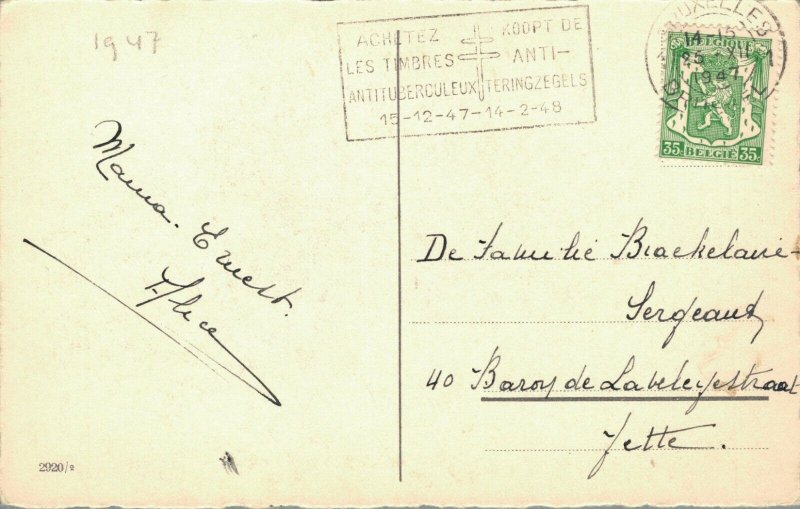 1947
ACHETEZ KOOPT DE
LES TIMBRES ANTI-
ANTITUBERCULEUX TERINGZEGELS
15-12-47-14-2-48
BRUXELLES
14-15
1947
BELGIQUE
35c BELGIE 35c
Mama. Ernest.
Alice
De Familie Braekelaire-
Sergeant
40 Baron de Laveleyestraat
Jette.
2920/2